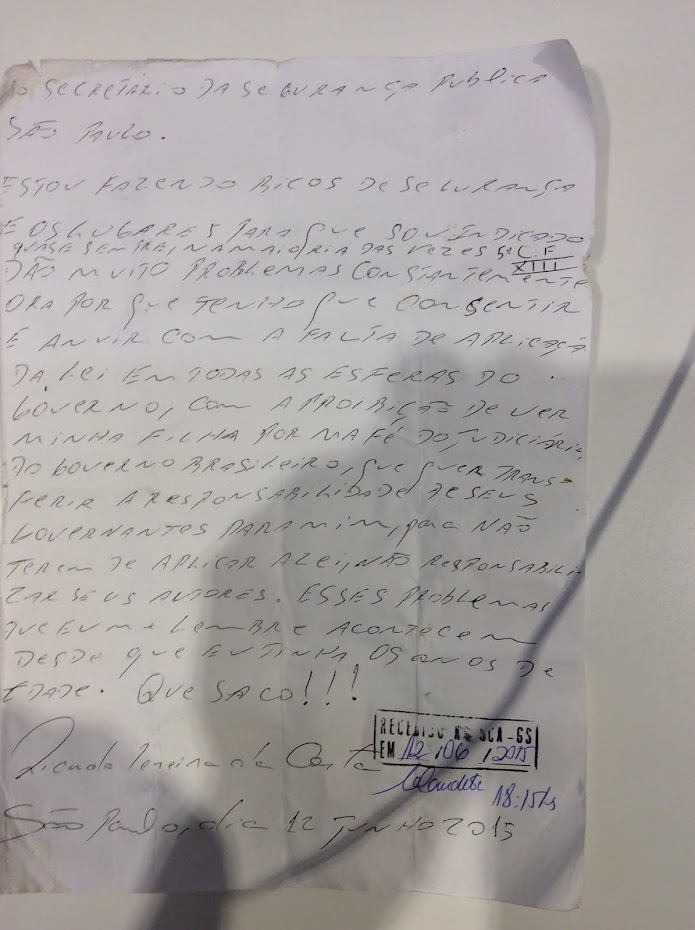 Ao SECRETÁRIO DA SEGURANÇA PUBLICA
SÃO PAULO.
ESTOU FAZENDO BICOS DE SEGURANÇA
E OS LUGARES PARA QUE SOU INDICADO
QUASE SEMPRE, NA MAIORIA DAS VEZES 5º C.F
XIII
DÃO MUITO PROBLEMAS CONSTANTEMENTE
ORA POR QUE TENHO QUE CONSENTIR
E ANUIR COM A FALTA DE APLICAÇÃ
DA LEI EM TODAS AS ESFERAS DO
GOVERNO, COM A PROIBIÇÃO DE VER
MINHA FILHA POR MA FÉ DO JUDICIÁRI
DO GOVERNO BRASILEIRO, QUE QUER TRANS-
FERIR A RESPONSABILIDADE DE SEUS
GOVERNANTES PARA MIM, para NÃO
TEREM DE APLICAR A LEI, NÃO RESPONSABILI-
ZAR SEUS AUTORES. ESSES PROBLEMAS
QUE EU ME LEMBRE ACONTECEM
DESDE QUE EU TINHA 05 ANOS DE
IDADE. QUE SACO!!!
RECEBIDO NA SCA-GS
EM 12/06/2015
Ricardo Pereira da Costa
Claudete 18:15hs
São Paulo, dia 12 JUNHO 2015